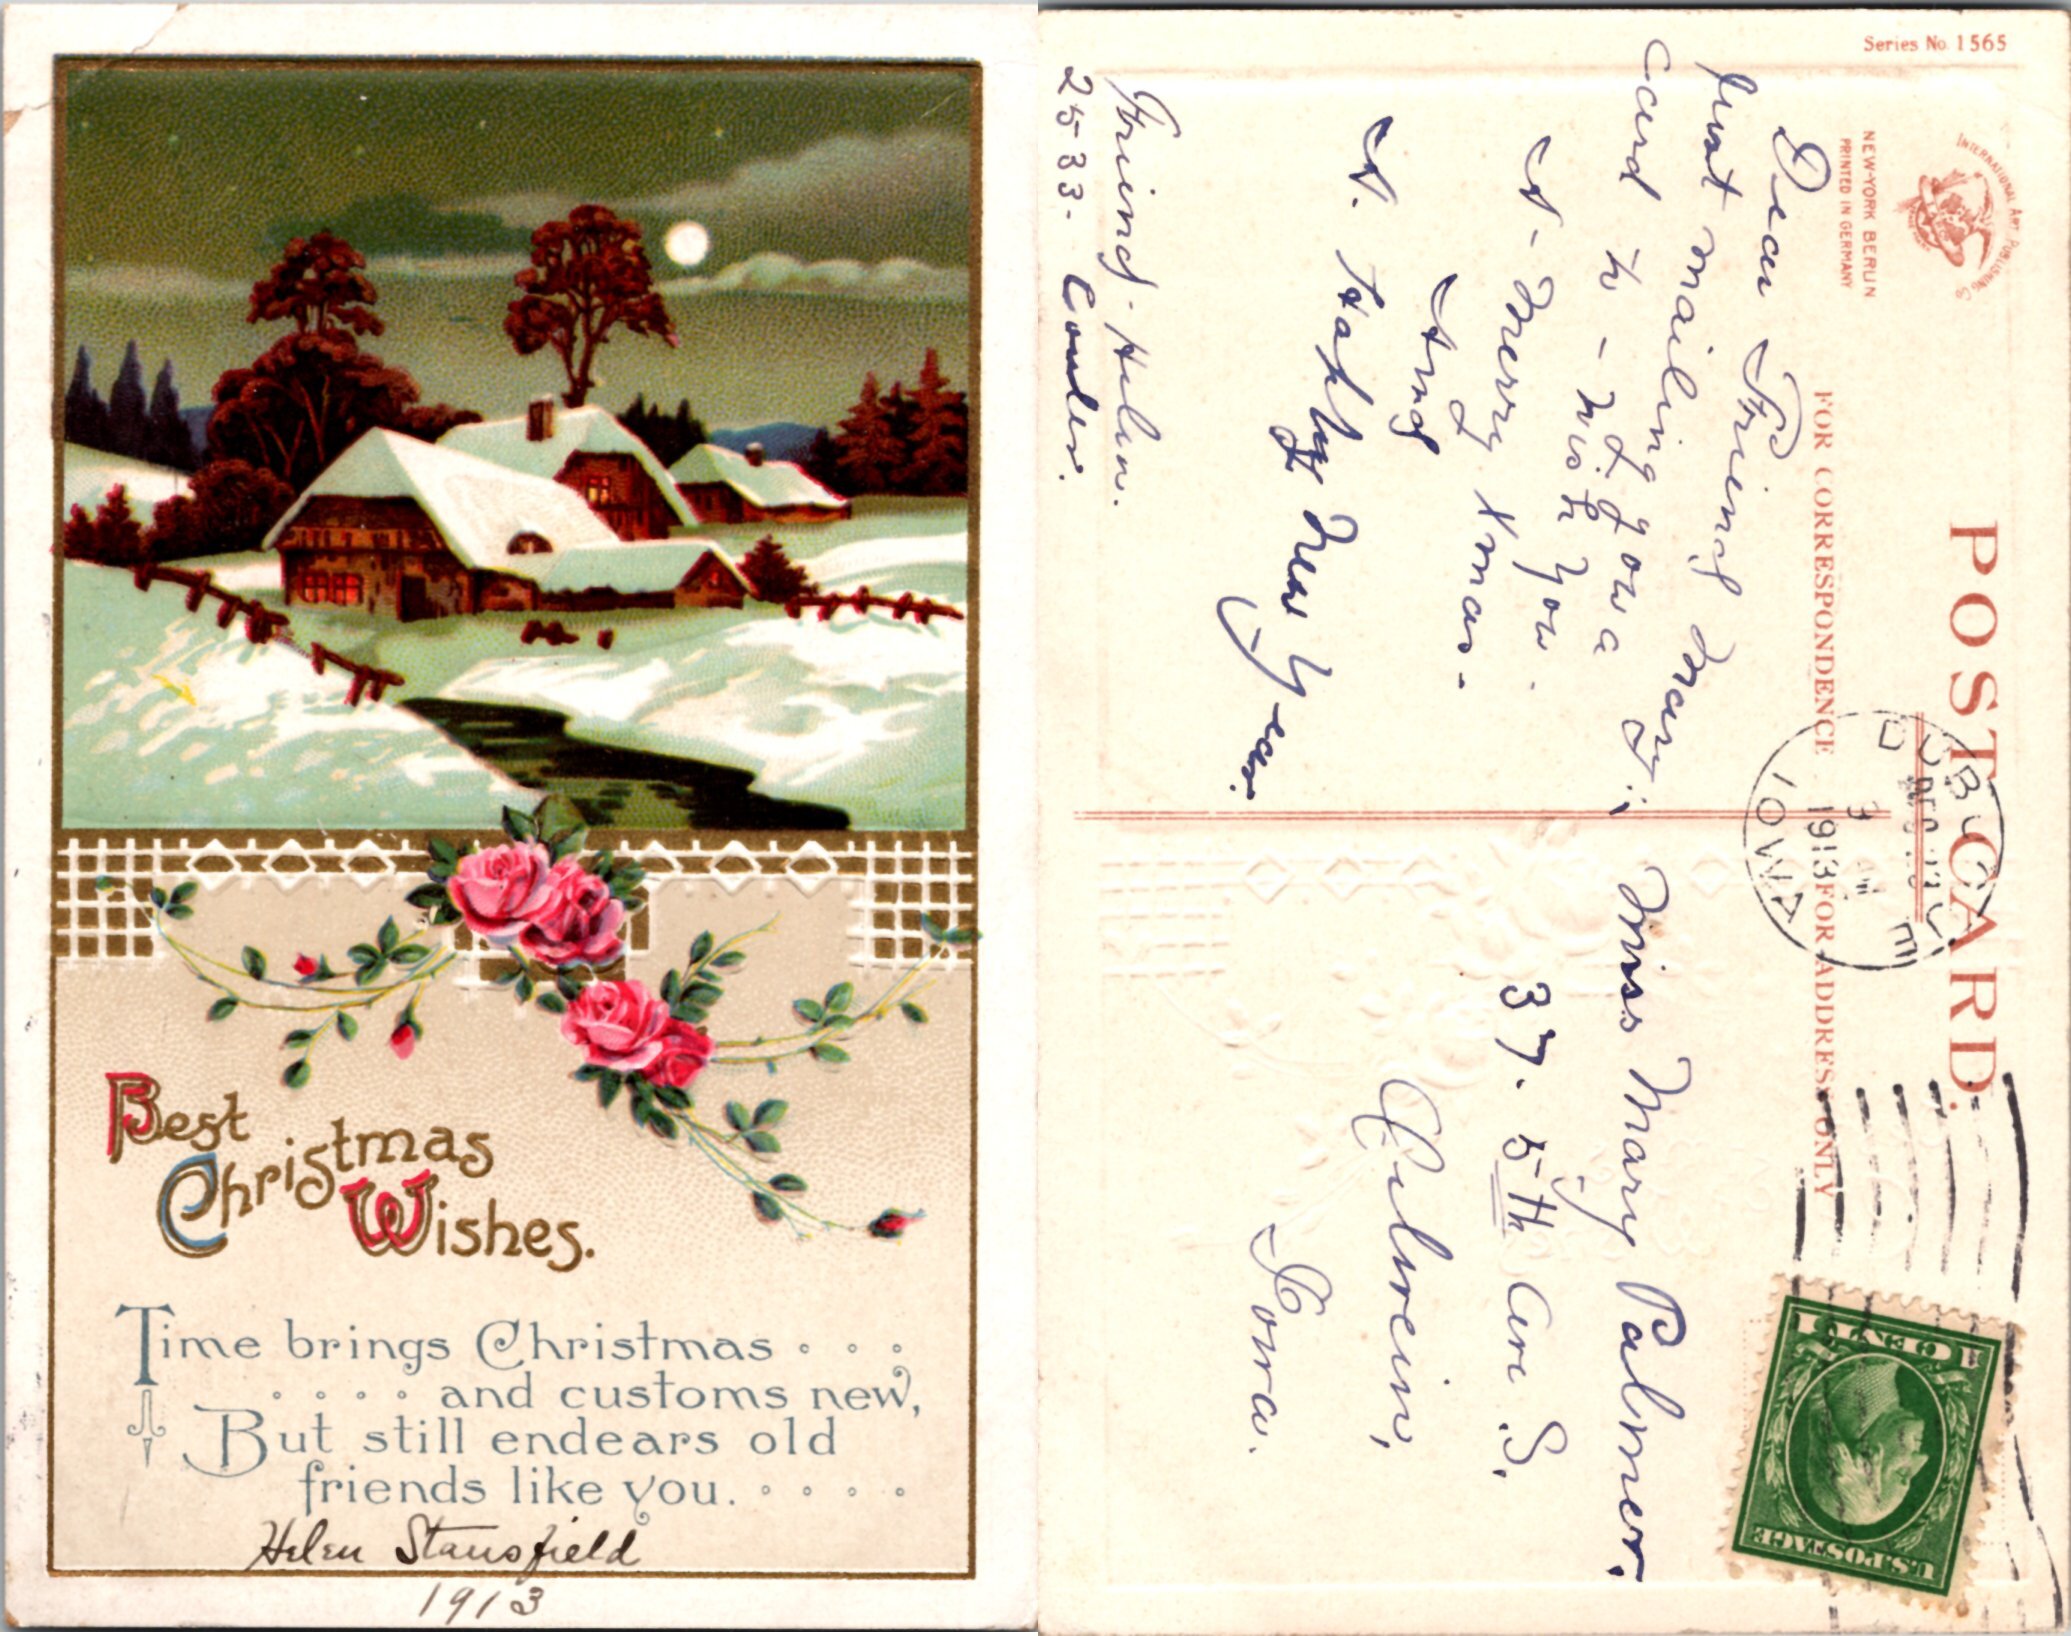 Best
Christmas
Wishes.
Time brings Christmas
and customs new,
But still endears old
friends like you.
Helen Stansfield
1913
Series No. 1565
INTERNATIONAL ART PUBLISHING CO
NEW-YORK BERLIN
PRINTED IN GERMANY
POST CARD.
FOR CORRESPONDENCE
FOR ADDRESS ONLY
Dear Friend Mary;
Just mailing you a
card to - wish you
A - Merry Xmas.
And
A. Happy New Year.
Friend - Helen.
2533 - Couler.
DUBUQUE
DEC 23
3 AM
1913
IOWA
Miss Mary Palmer.
37. 5th Ave S.
Oelwein,
Iowa.
U.S. POSTAGE
1 ONE 1